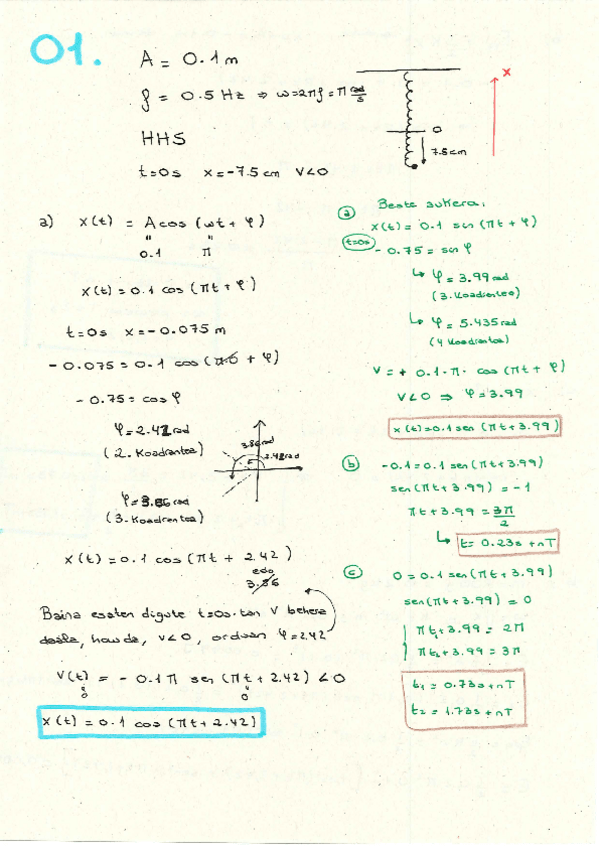 01.
A = 0.1 m
f = 0.5 Hz ⇒ ω=2πf=π rad/s
HHS
t=0s x=-7.5 cm V<0
x
0
7.5cm
a) x(t) = A cos (ωt + φ)
" "
0.1 π
x(t)=0.1 cos (πt+φ)
t=0s x=-0.075 m
-0.075=0.1 cos (π·0 + φ)
-0.75=cos φ
φ=2.42 rad
(2. Koadrantea)
φ=3.86 rad
(3. Koadrantea)
3.86 rad
2.42 rad
x(t)=0.1 cos (πt + 2.42)
edo
3.86
Baina esaten digute t=0s-tan V behera
doala, hau da, V<0, orduan φ=2.42
V(t) = - 0.1π sen (πt+2.42) <0
0 0
x(t)=0.1 cos (πt+2.42)
Beste aukera:
a x(t)= 0.1 sen (πt+φ)
t=0s -0.75=sen φ
↳ φ=3.99 rad
(3. Koadrantea)
↳ φ=5.435 rad
(4 Koadrantea)
V=+ 0.1·π· cos (πt+φ)
V<0 ⇒ φ=3.99
x(t)=0.1 sen (πt+3.99)
b -0.1=0.1 sen(πt+3.99)
sen(πt+3.99)=-1
πt+3.99=3π/2
↳ t=0.23s+nT
c 0=0.1 sen(πt+3.99)
sen(πt+3.99)=0
πt₁+3.99= 2π
πt₂+3.99=3π
t₁ = 0.73s+nT
t₂ = 1.73s+nT